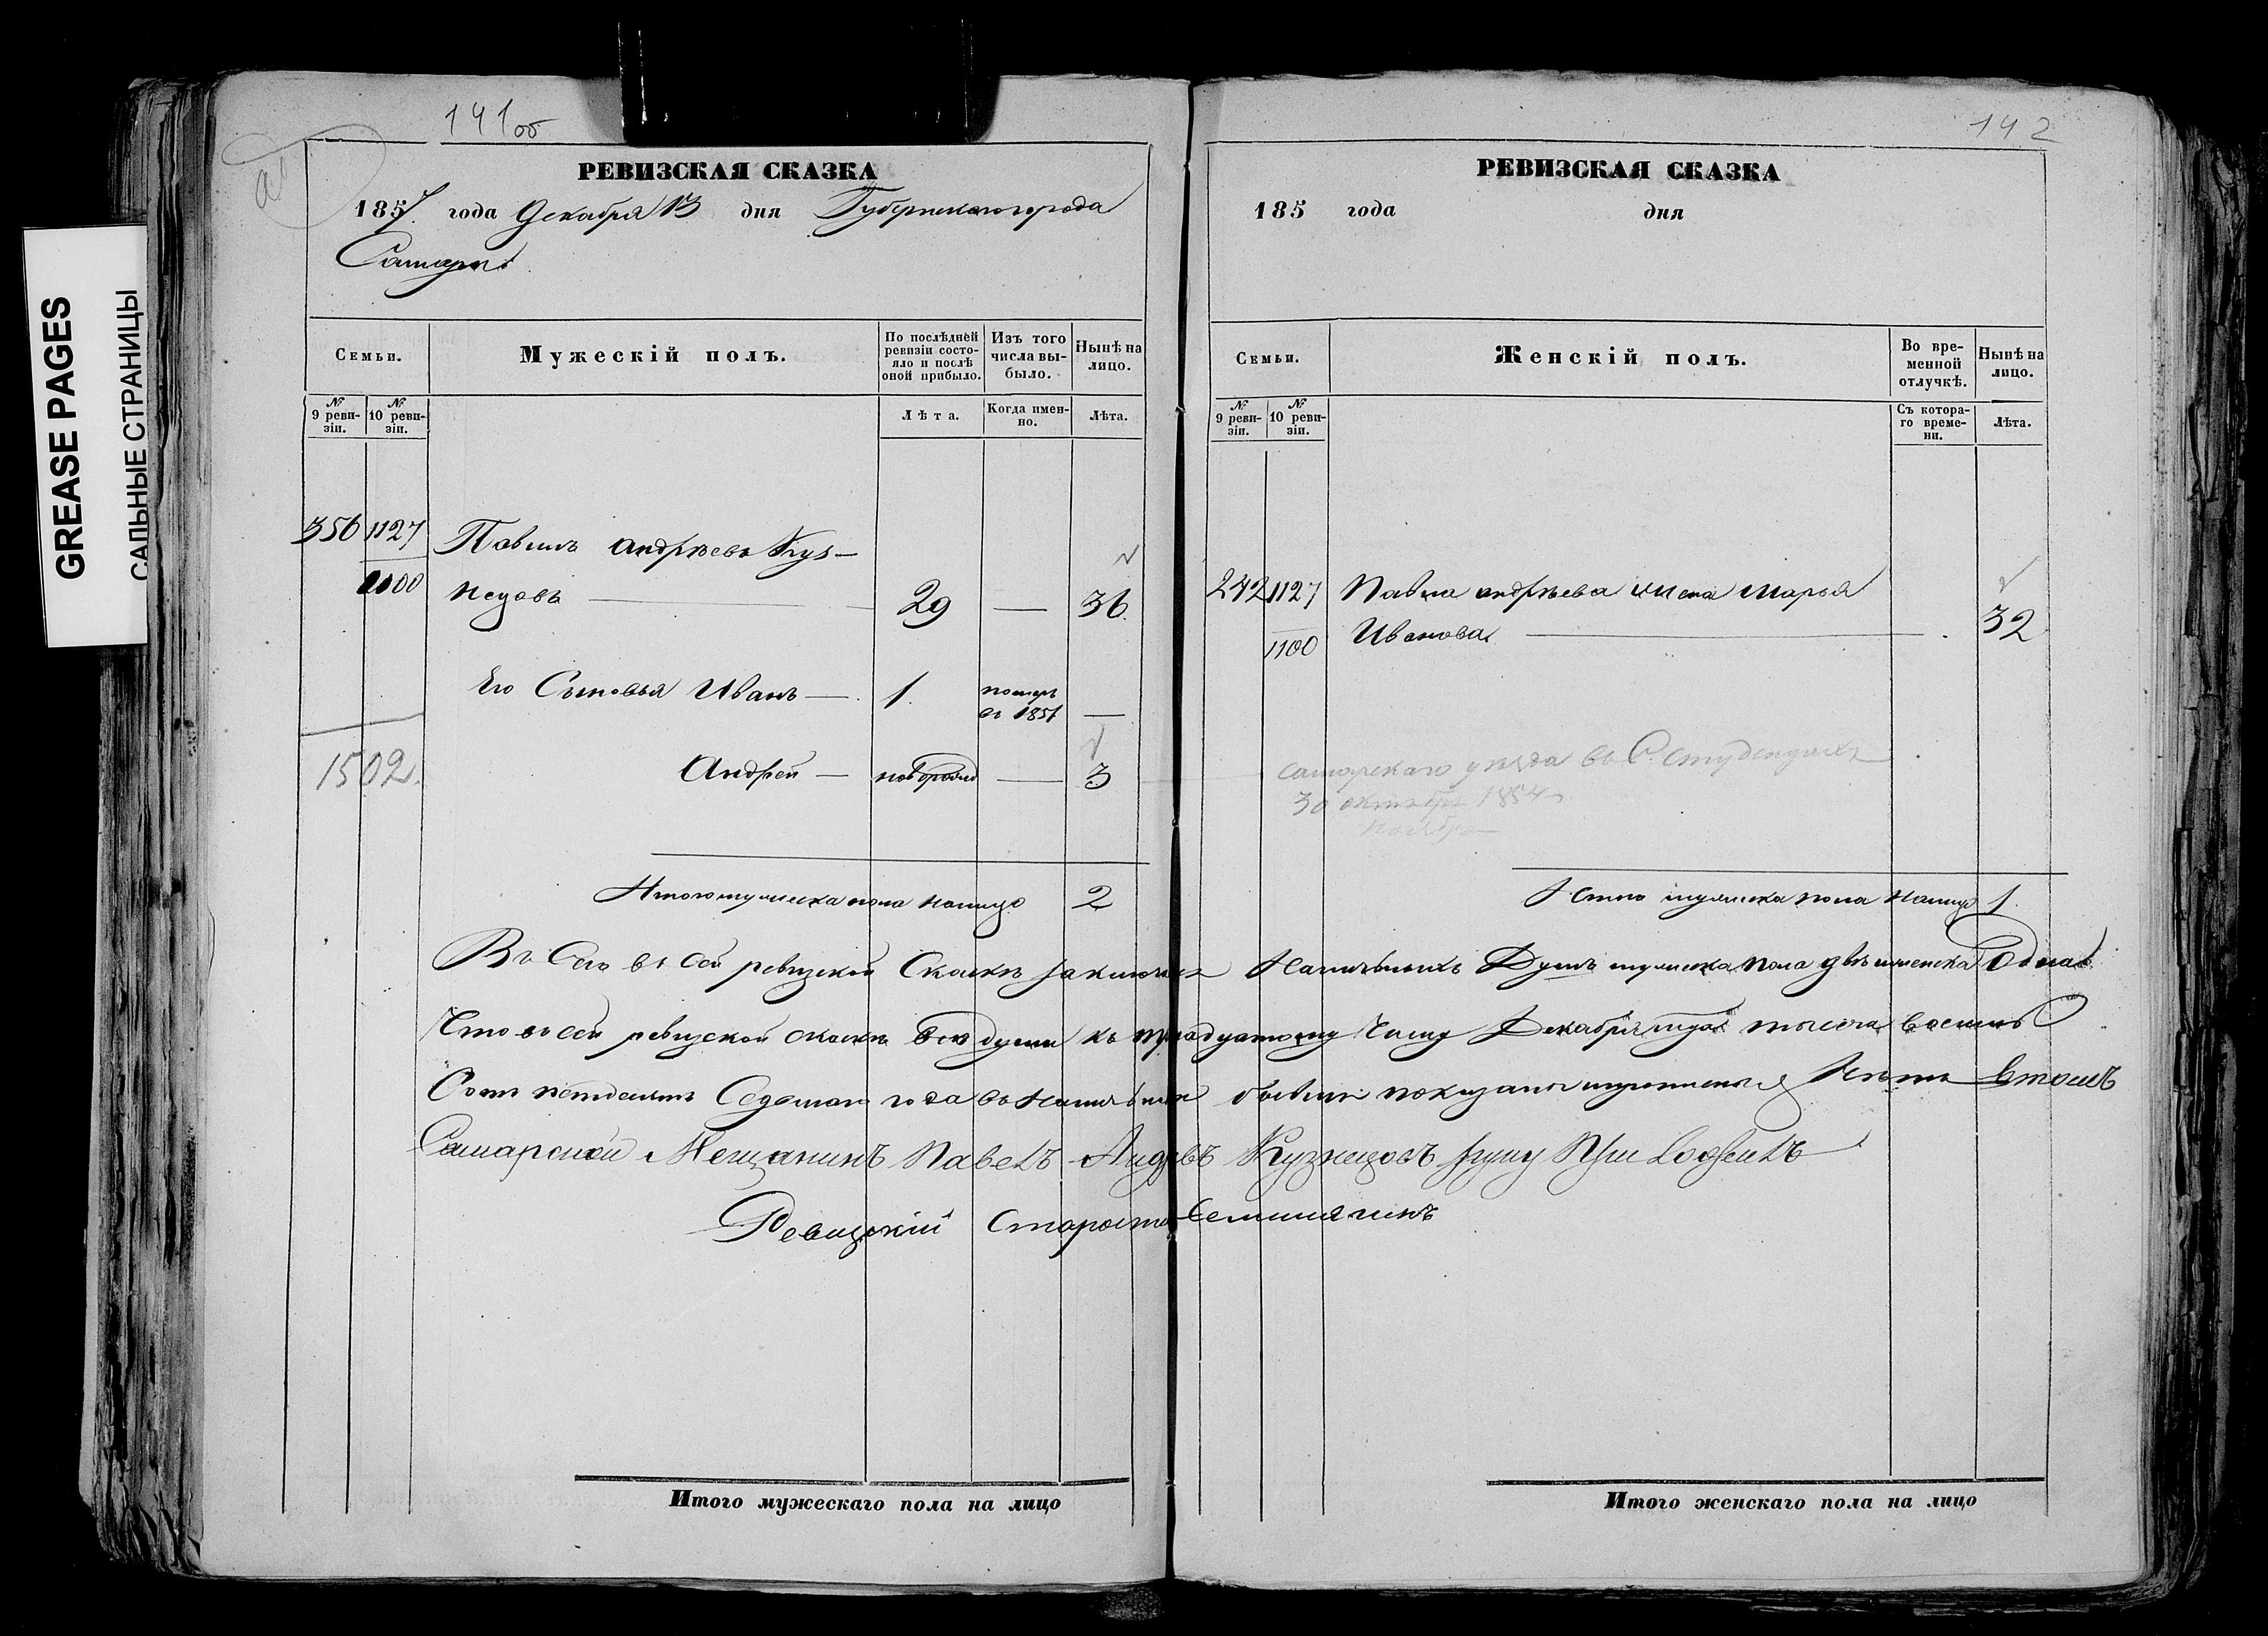 GREASE PAGES
САЛЬНЫЕ СТРАНИЦЫ
141об
РЕВИЗСКАЯ СКАЗКА
1857 года Декабря 13 дня Губернскаго города
Самары
Семьи.
Мужескій полъ.
По послѣдней ревизіи состояло и послѣ оной прибыло.
Изъ того числа выбыло.
Нынѣ на лицо.
№ 9 ревизіи.
№ 10 ревизіи.
Лѣта.
Когда именно.
Лѣта.
356 1127 Павелъ Андрѣевъ Куз-
1100 нецовъ — 29 — 36
Его Сыновья Иванъ — 1 померъ
въ 1851 —
1502 Андрей — новорожд — 3
Итого мужеска пола налицо 2
142
РЕВИЗСКАЯ СКАЗКА
185 года дня
Семьи.
Женскій полъ.
Во временной отлучкѣ.
Нынѣ на лицо.
№ 9 ревизіи.
№ 10 ревизіи.
Съ котораго времени.
Лѣта.
242 1127 Павла Андрѣева жена Марья
1100 Иванова — 32
Самарскаго уѣзда въ С.
30 октября 1854
ноября
пола налицо 1
Всего въ сей ревизской Сказкѣ наличныхъ Душъ мужеска пола двѣ женска Одна
Что въ сей ревизской сказкѣ всѣ души къ Числу Декабря тысяча восемь
Сотъ Седьмаго года въ показаны и Лѣтъ Втомъ
Самарской Мещанинъ Павелъ Кузнецовъ руку Приложилъ
Ревизскій Староста
Итого мужескаго пола на лицо
Итого женскаго пола на лицо